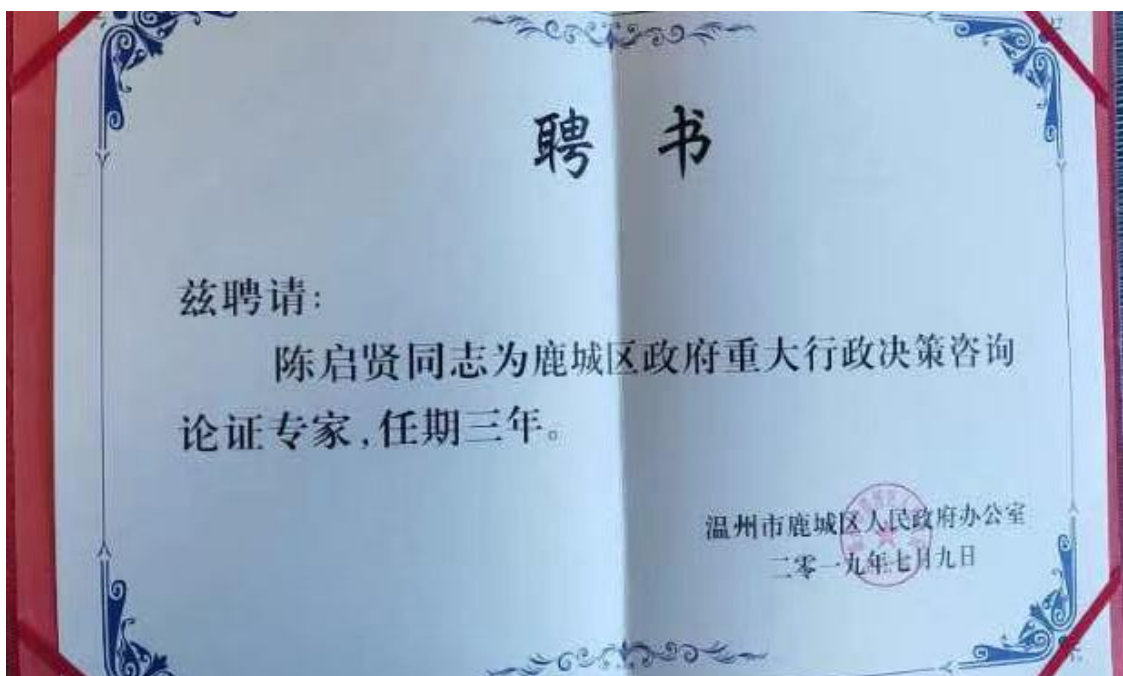 聘 书
兹聘请:
陈启贤同志为鹿城区政府重大行政决策咨询
论证专家,任期三年。
温州市鹿城区人民政府办公室
二零一九年七月九日